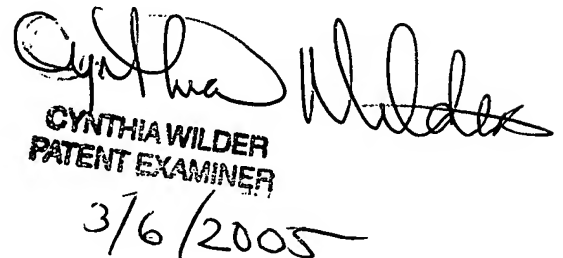 Cynthia Wilder
CYNTHIA WILDER
PATENT EXAMINER
3/6/2005